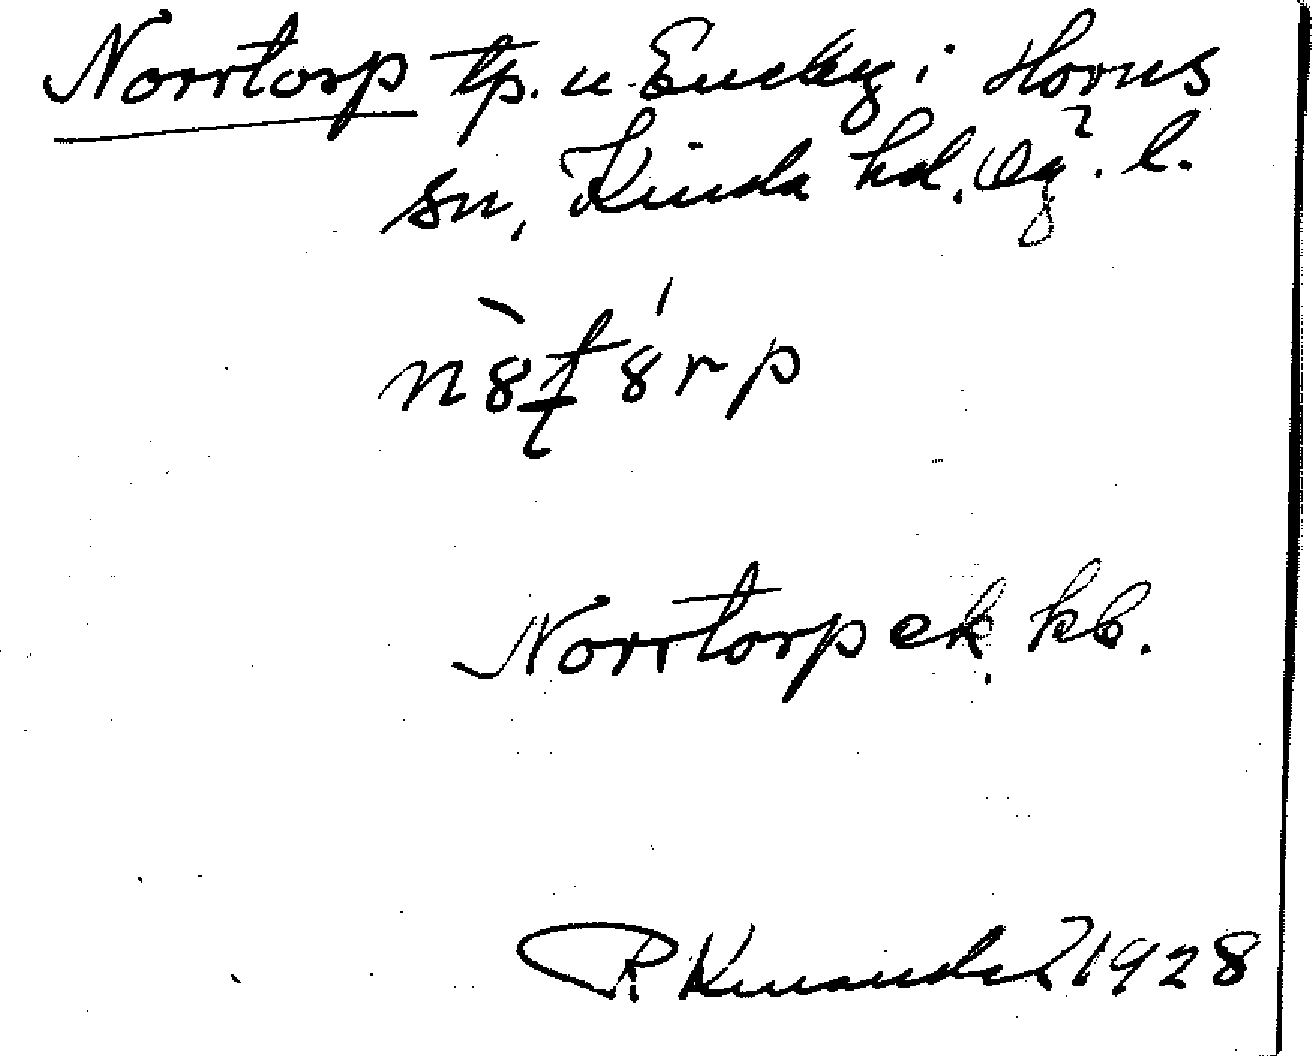 Norrtorp tp. u. Eneby i Horns
sn, Kinda hd. Ög. l.
n8t8rp
Norrtorp ek. kb.
R Kinander 1928